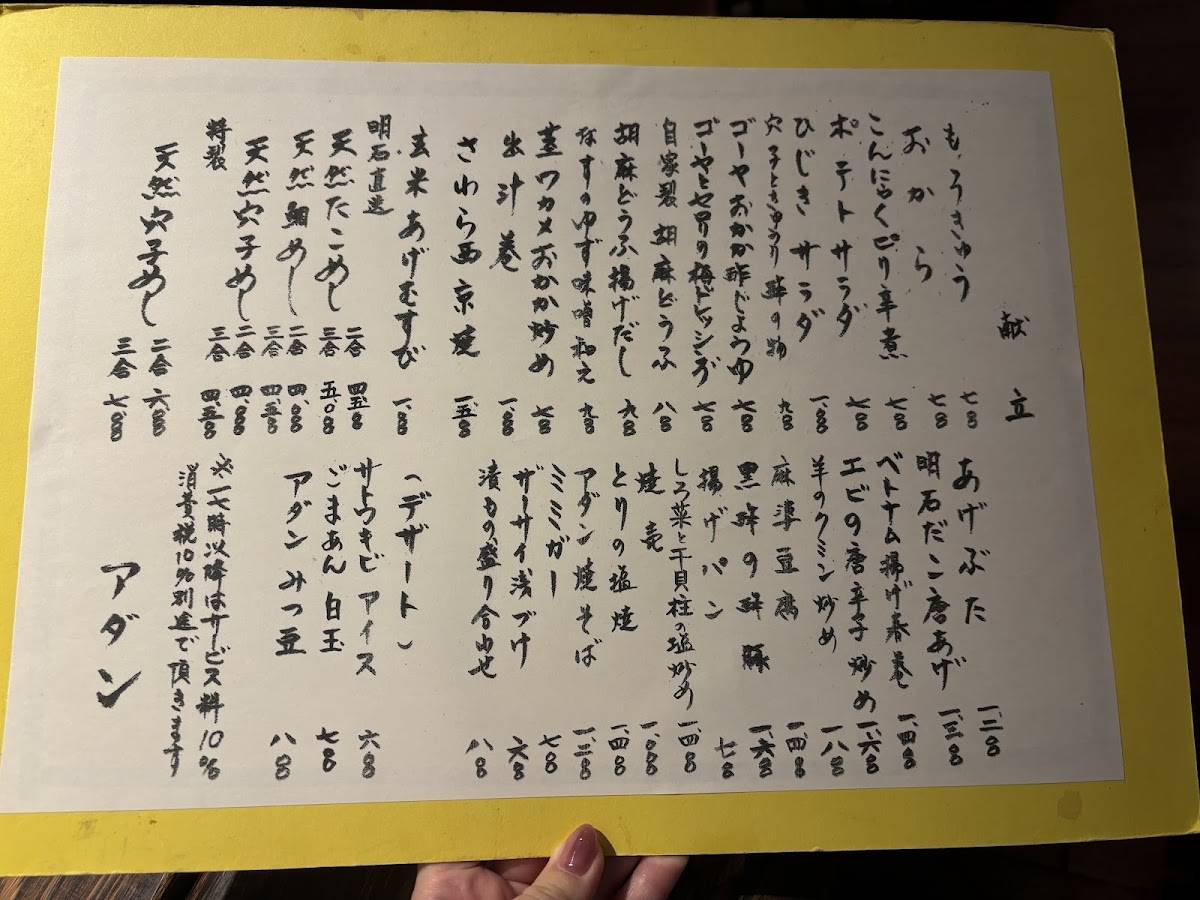 献立
もろきゅう 七〇〇
おから 七〇〇
こんにゃくピリ辛煮 七〇〇
ポテトサラダ 七〇〇
ひじきサラダ 一、〇〇〇
穴子ときゅうり酢の物 九〇〇
ゴーヤおかか酢じょうゆ 七〇〇
ゴーヤとセロリの梅ドレッシング 七〇〇
自家製 胡麻どうふ 八〇〇
胡麻どうふ揚げだし 九〇〇
なすのゆず味噌和え 九〇〇
茎ワカメおかか炒め 七〇〇
出汁巻 一、〇〇〇
さわら西京焼 一、五〇〇
玄米あげむすび 一、〇〇〇
明石直送
天然たこめし 二合 四、五〇〇
三合 五、〇〇〇
天然鯛めし 二合 四、〇〇〇
三合 四、五〇〇
天然穴子めし 二合 四、〇〇〇
三合 四、五〇〇
特製
天然穴子めし 二合 六、〇〇〇
三合 七、〇〇〇
あげぶた 一、二〇〇
明石だこ唐あげ 一、三〇〇
ベトナム揚げ春巻 一、四〇〇
エビの唐辛子炒め 一、六〇〇
羊のクミン炒め 一、八〇〇
麻婆豆腐 一、四〇〇
黒酢の酢豚 一、六〇〇
揚げパン 七〇〇
しろ菜と干貝柱の塩炒め 一、四〇〇
焼売 一、〇〇〇
とりの塩焼 一、四〇〇
アダン焼そば 一、三〇〇
ミミガー 七〇〇
ザーサイ浅づけ 六〇〇
漬もの盛り合わせ 八〇〇
（デザート）
サトウキビアイス 六〇〇
ごまあん白玉 七〇〇
アダンみつ豆 八〇〇
※一七時以降はサービス料10%
消費税10%別途で頂きます
アダン